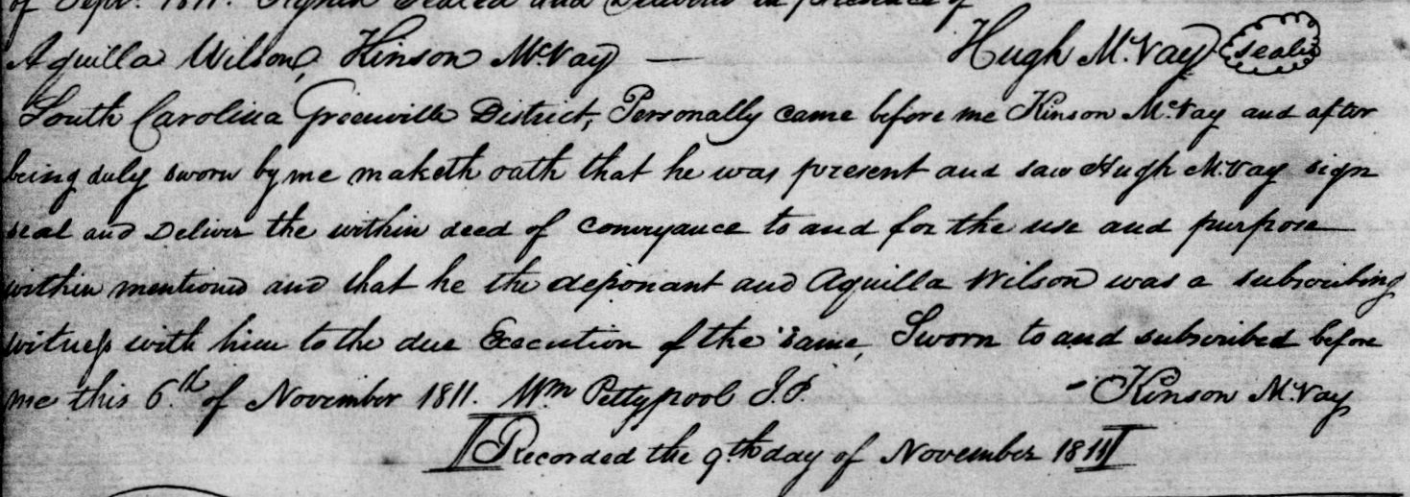 of Sept. 1811. Signed Sealed and Delivered in presence of
Aquilla Wilson, Kinson McVay — Hugh McVay seale
South Carolina Greenville District, Personally came before me Kinson McVay and after
being duly sworn by me maketh oath that he was present and saw Hugh McVay sign
seal and Deliver the within deed of conveyance to and for the use and purpose
within mentioned and that he the deponant and Aquilla Wilson was a subscribing
witness with him to the due Execution of the same, Sworn to and subscribed before
me this 6.th of November 1811. Wm Pettypool J.P. - Kinson McVay
Recorded the 9th day of November 1811